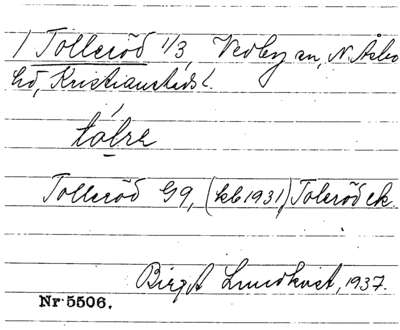 1 Tolleröd 1/3, Vedby sn, N. Åsbo
hd, Kristianstads l.
tålre
Tolleröd G9, (kb 1931) Toleröd ek.
Birgit Lundkvist, 1937.
Nr 5506.